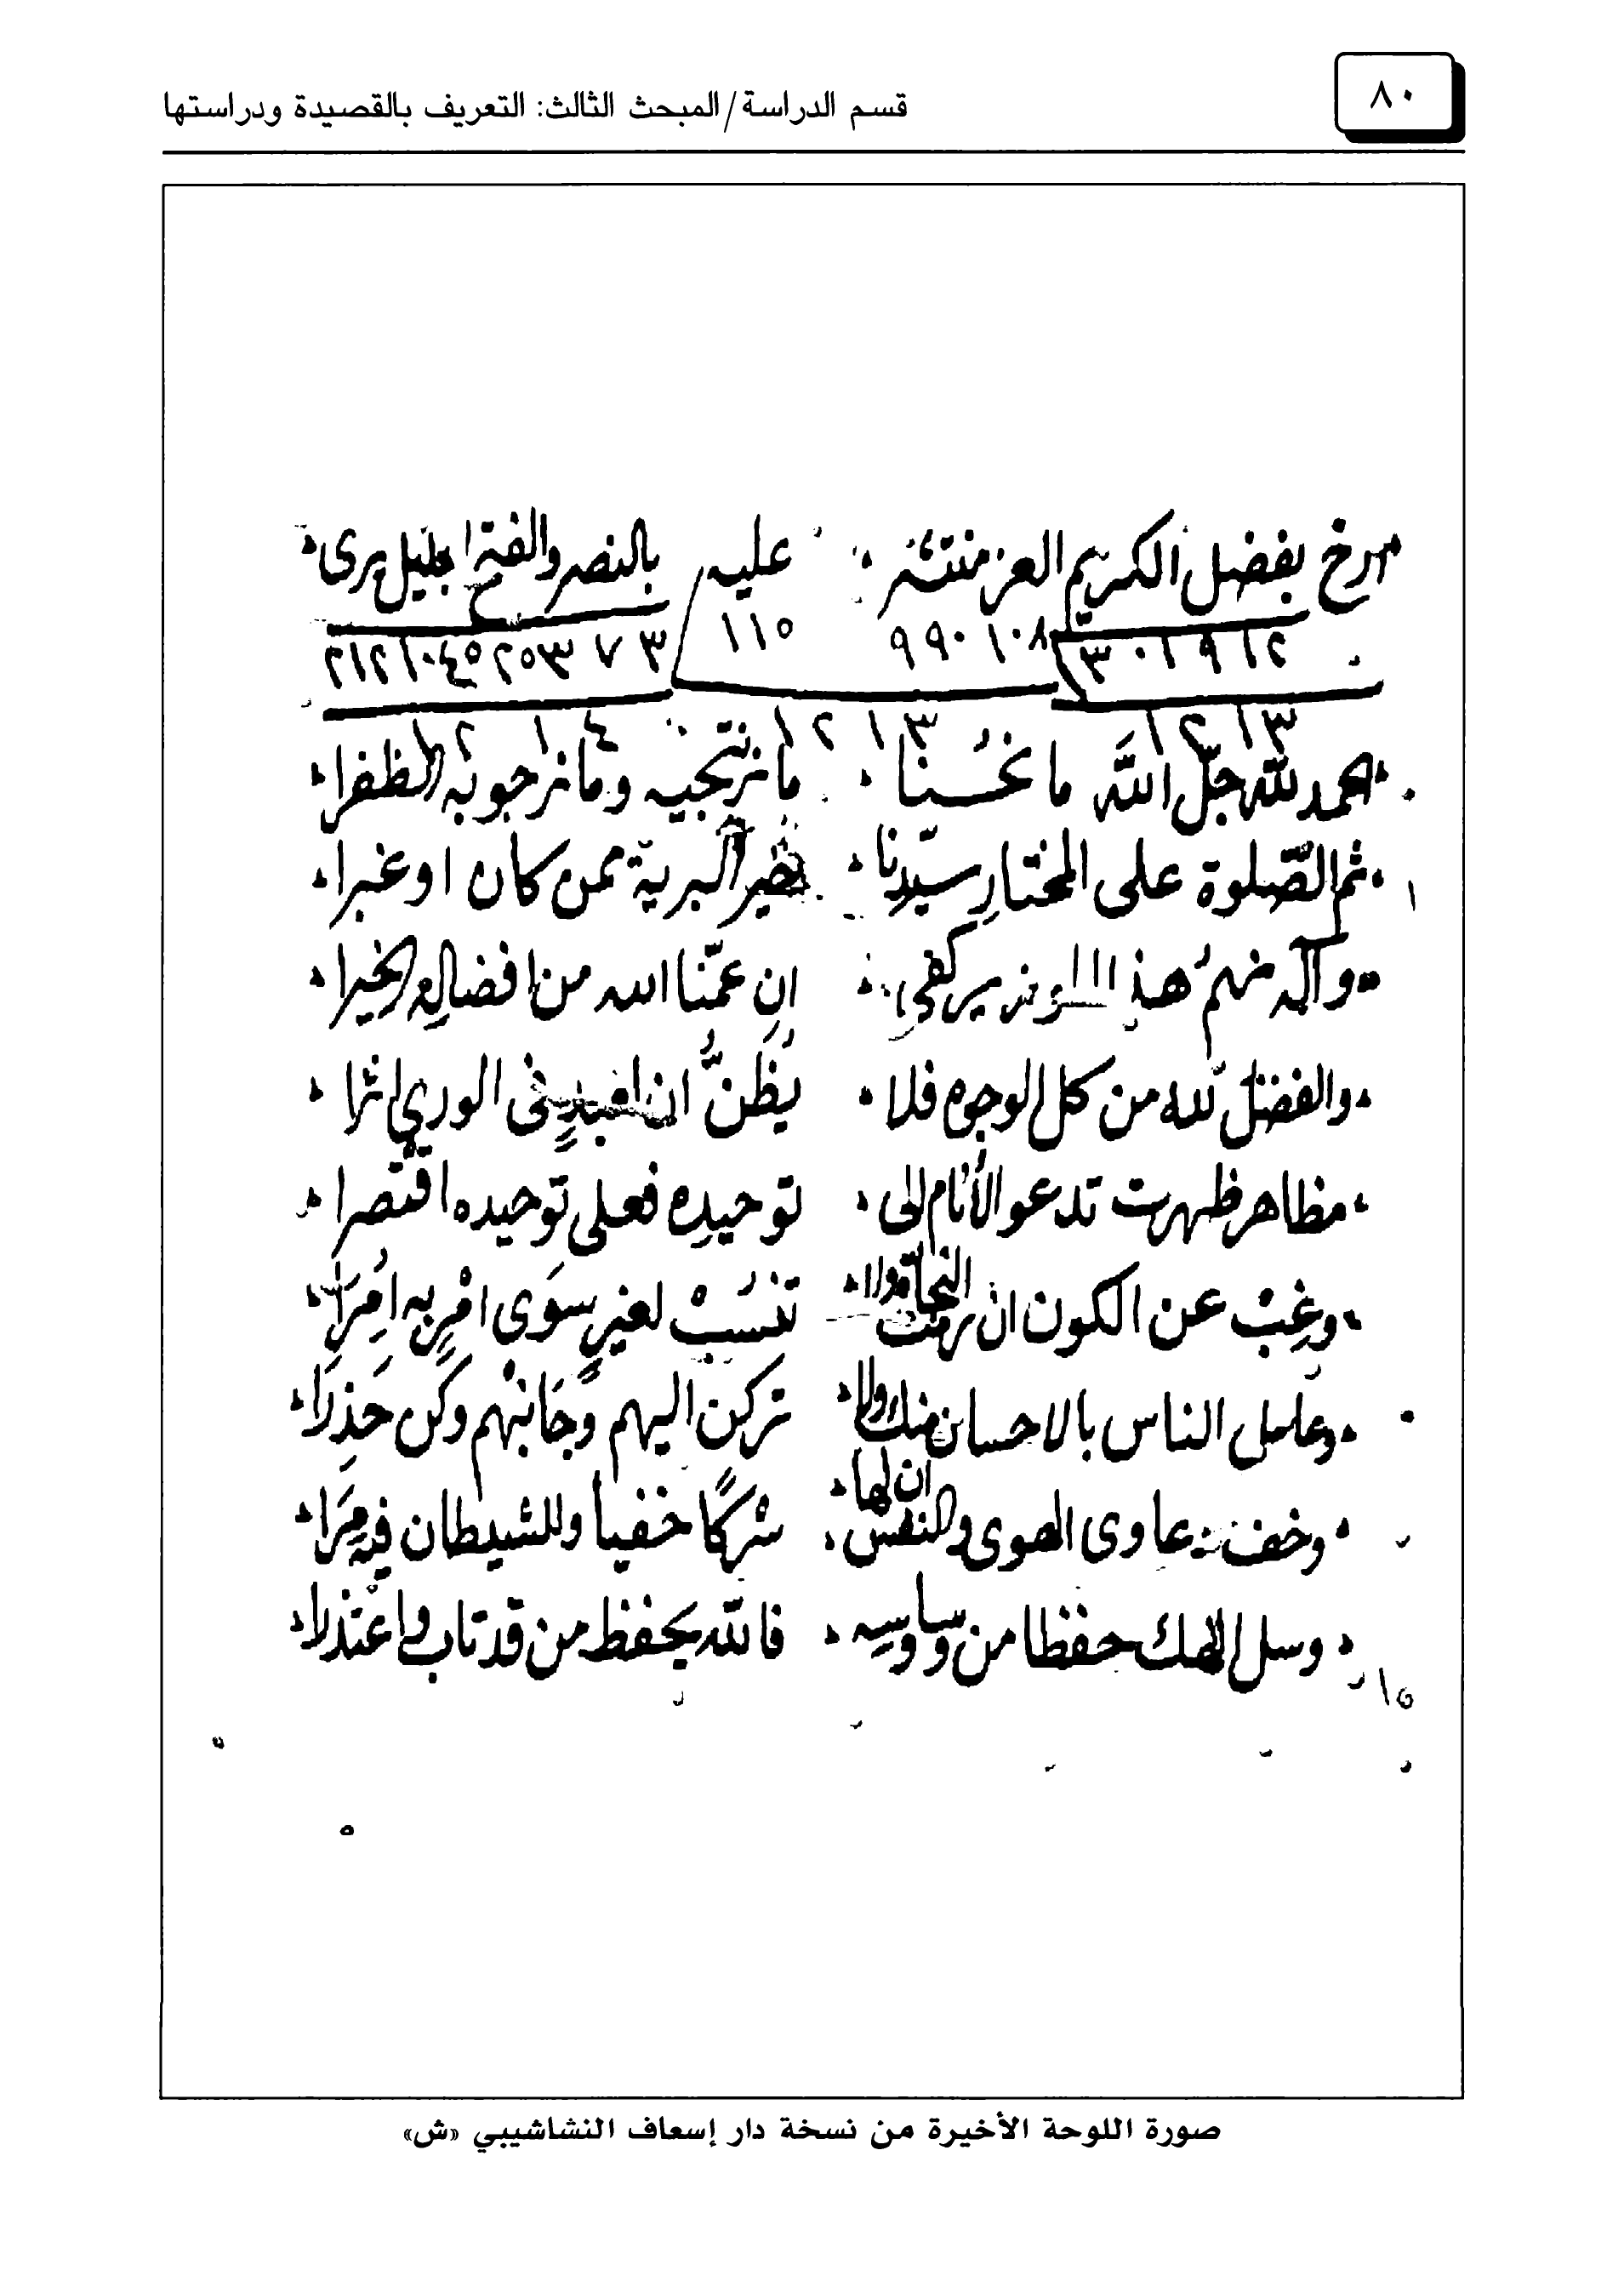 ٨٠
قسم الدراسة/المبحث الثالث: التعريف بالقصيدة ودراستها
ارخ بفضل الكريم العز منتشر عليه بالنصر والفتح الجليل يرى
٩١٢ ٩٩٠ ١٠٨ ١١٥
١٢١٣ ١٢١٣
الحمد لله جل الله ما نحسنا ما نرتجيه وما نرجو به الظفرا
ثم الصلوة على المختار سيّدنا خير البرية ممن كان او غبرا
وآله منهم هذا ان عمّنا الله من افضاله الخيرا
والفضل لله من كل الوجوه فلا يظنّ ان لعبدٍ في الورى اثرا
مظاهر ظهرت تدعو الأنام الى توحيده فعلى توحيده اقتصرا
وغبْ عن الكون ان رمت النجاة ولا تنسُبْ لغيرٍ سوى امْرٍ به اُمِرَا
وعامل الناس بالاحسان منك ولا تركن اليهم وجَانبْهم وكن حَذِرَا
وخف دعاوى الهوى والنفس ان لها شركًا خفيا وللشيطان فيه مِرَا
وسل الهك حفظا من وساوسه فالله يحفظ من قد تاب واعتذرا
صورة اللوحة الأخيرة من نسخة دار إسعاف النشاشيبي «ش»